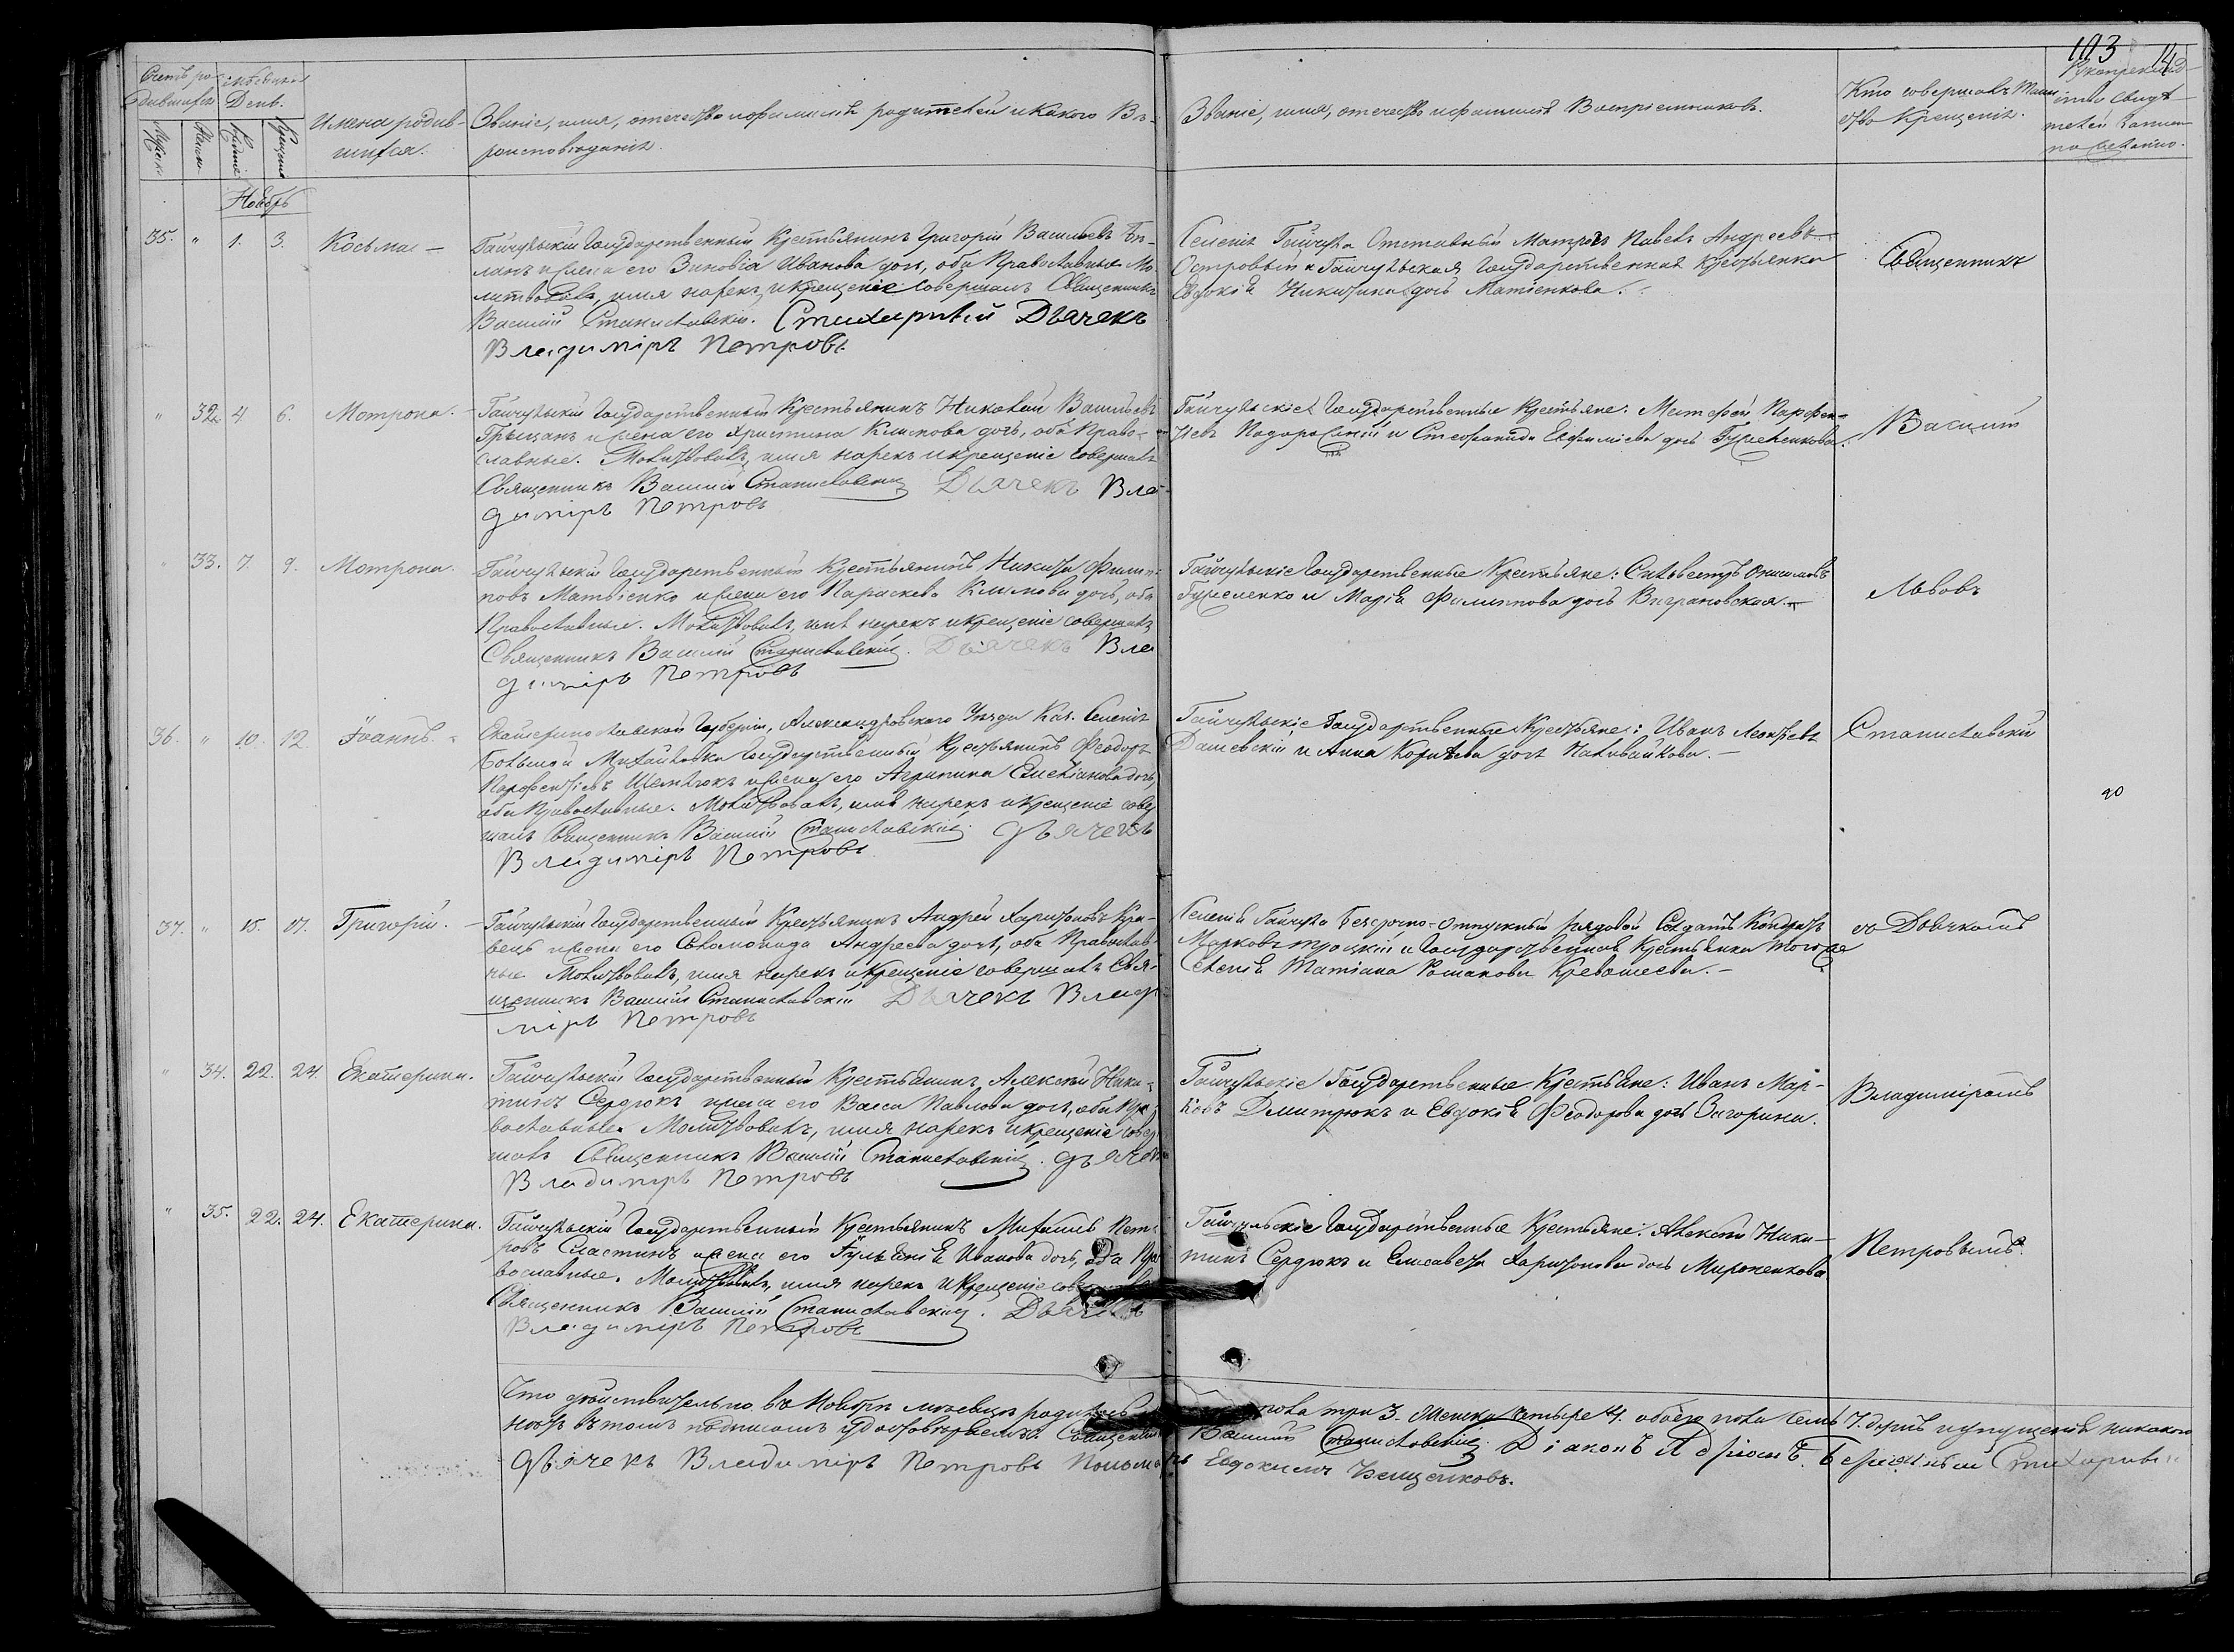 103 14
Счетъ ро-
дившихся
Мѣсяцъ и
День.
Имена родив-
шихся.
Званіе, имя, отечество и фамилія родителей и какого Вѣ-
роисповѣданія.
Званіе, имя, отечество и фамилія Воспріемниковъ.
Кто совершалъ Таин-
ство Крещенія.
Рукоприклад-
ство Свидѣ-
телей записи
по желанію.
Ноябрь
35. " 1. 3. Косьма —
Гайчульскій Государственный Крестьянинъ Григорій Васильевъ
жена его Зиновія Иванова дочь, оба Православные. Мо-
литвовалъ, имя нарекъ и крещеніе совершалъ Священникъ
Василій Станиславскій. Стихарный Дьячекъ
Владиміръ Петровъ
Селенія Гайчула Отставный Матросъ Павелъ Андреевъ
Островый и Гайчульская Государственная Крестьянка
Евдокія Никитина дочь Матіенкова.
Священникъ
" 32. 4. 6. Мотрона.
Гайчульскій Государственный Крестьянинъ Николай Васильевъ
Грыцанъ и жена его Христина Климова дочь, оба Право-
славные. Молитвовалъ, имя нарекъ и крещеніе совершалъ
Священникъ Василій Станиславскій Дьячекъ Вла-
диміръ Петровъ
Гайчульскіе Государственные Крестьяне: Матфей Парфен-
тіевъ и Стефанида Евфиміева дочь Гужеленкова.
Василій
" 33. 7. 9. Мотрона.
Гайчульскій Государственный Крестьянинъ Никита Филип-
повъ Матвіенко и жена его Параскева Климова дочь, оба
Православные. Молитвовалъ, имя нарекъ и крещеніе совершалъ
Священникъ Василій Станиславскій. Дьячекъ Вла
диміръ Петровъ
Гайчульскіе Государственные Крестьяне: Сильвестръ Онисимовъ
Гужеленко и Марія Филиппова дочь Виграновская. —
Львовъ
36. " 10. 12. Іоаннъ.
Екатеринославской Губерніи, Александровского Уѣзда Каз. Селенія
Большой Михайловки Государственный Крестьянинъ Феодоръ
Парфентіевъ и жена его Агрипина Емельянова дочь,
оба Православные. Молитвовалъ, имя нарекъ и крещеніе совер
шалъ Священникъ Василій Станиславскій. Дьячекъ
Владиміръ Петровъ
Гайчульскіе Государственные Крестьяне: Иванъ Леонтіевъ
Дашевскій и Анна Корнѣева дочь Наливайкова. —
Станиславскій
37. " 15. 17. Григорій. —
Гайчульскій Государственный Крестьянинъ Андрей Харитоновъ Кра-
вецъ и жена его Соломонида Андреева дочь, оба Православ-
ные. Молитвовалъ, имя нарекъ и крещеніе совершалъ Свя-
щенникъ Василій Станиславскій Дьячекъ Влади
міръ Петровъ
Селенія Гайчула Безсрочно-отпускный рядовой Солдатъ Кондратъ
Марковъ Троцкій и Государственная Крестьянка того же
Селенія Татіана Романова.
съ Дьячкомъ
" 34. 22. 24. Екатерина.
Гайчульскій Государственный Крестьянинъ Алексѣй Ники-
тинъ Сердюкъ и жена его Васса Павлова дочь, оба Пра
вославные. Молитвовалъ, имя нарекъ и крещеніе совер
шалъ Священникъ Василій Станиславскій. Дьячекъ
Владиміръ Петровъ
Гайчульскіе Государственные Крестьяне: Иванъ Мар-
ковъ Дмитрюкъ и Евдокія Феодорова дочь Загорина.
Владиміромъ
" 35. 22. 24. Екатерина.
Гайчульскій Государственный Крестьянинъ Михаилъ Пет-
ровъ Сластинъ и жена его Гуліанія Иванова дочь, оба Пра
вославные. Молитвовалъ, имя нарекъ и крещеніе
Священникъ Василій Станиславскій. Дьячекъ
Владиміръ Петровъ
Гайчульскіе Государственные Крестьяне: Алексѣй Ники-
тинъ Сердюкъ и Елисавета Харитонова дочь Мироненкова
Петровымъ.
Что дѣйствительно въ Ноябрѣ мѣсяцѣ родилось пола три 3. женска четыре 4. обоего пола семь 7. душъ и упущенія никакого
нѣтъ въ томъ подписомъ удостовѣряемъ: Священникъ Василій Станиславскій. Діаконъ Стихарный
Дьячекъ Владиміръ Петровъ Пономарь Евдокимъ